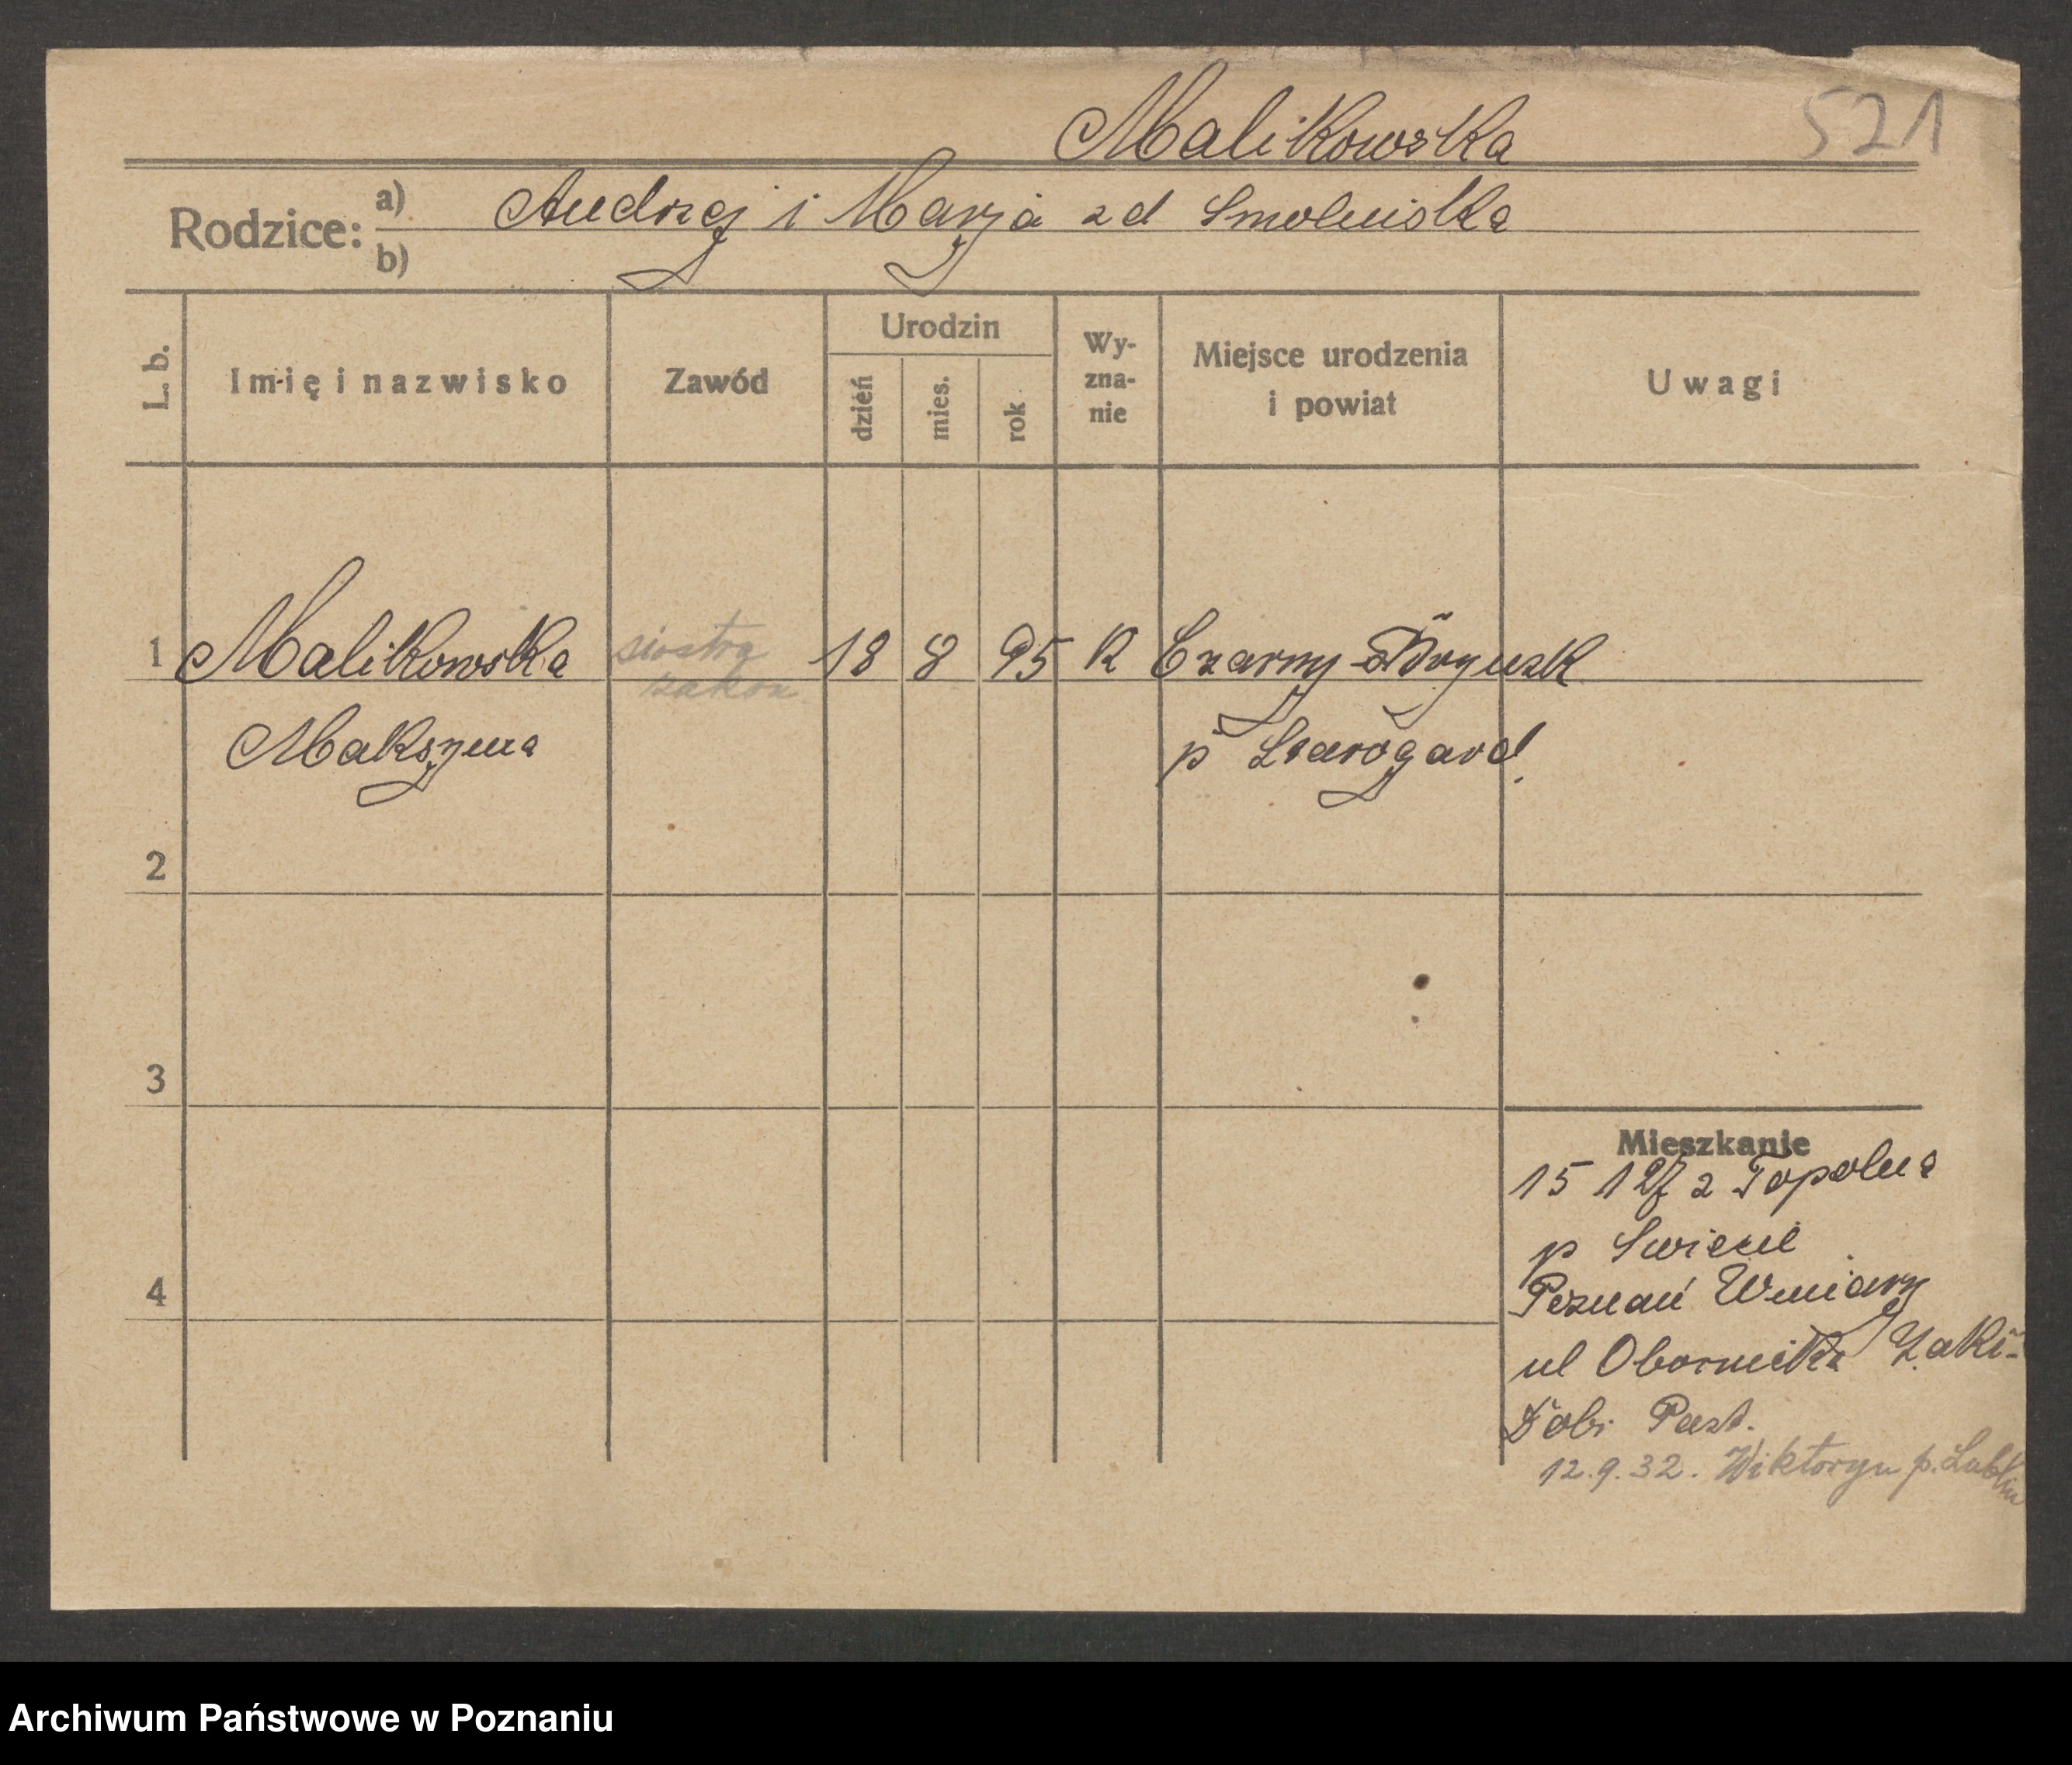 Malikowska 521
Rodzice: a) Andrzej i Marja zd Smolniska
b)
L. b. Imię i nazwisko Zawód Urodzin dzień mies. rok Wy-zna-nie Miejsce urodzenia i powiat Uwagi
1 Malikowska siostra 18 8 95 K Czarny
zakon
Maksyma p Starogard
2
3
Mieszkanie
15 1 27 z Topolna
p Swiecie
4
Poznań Winiary
ul Obornicka Zakł-
Dobr Past.
12.9.32. Wiktoryn p. Lublin
Archiwum Państwowe w Poznaniu